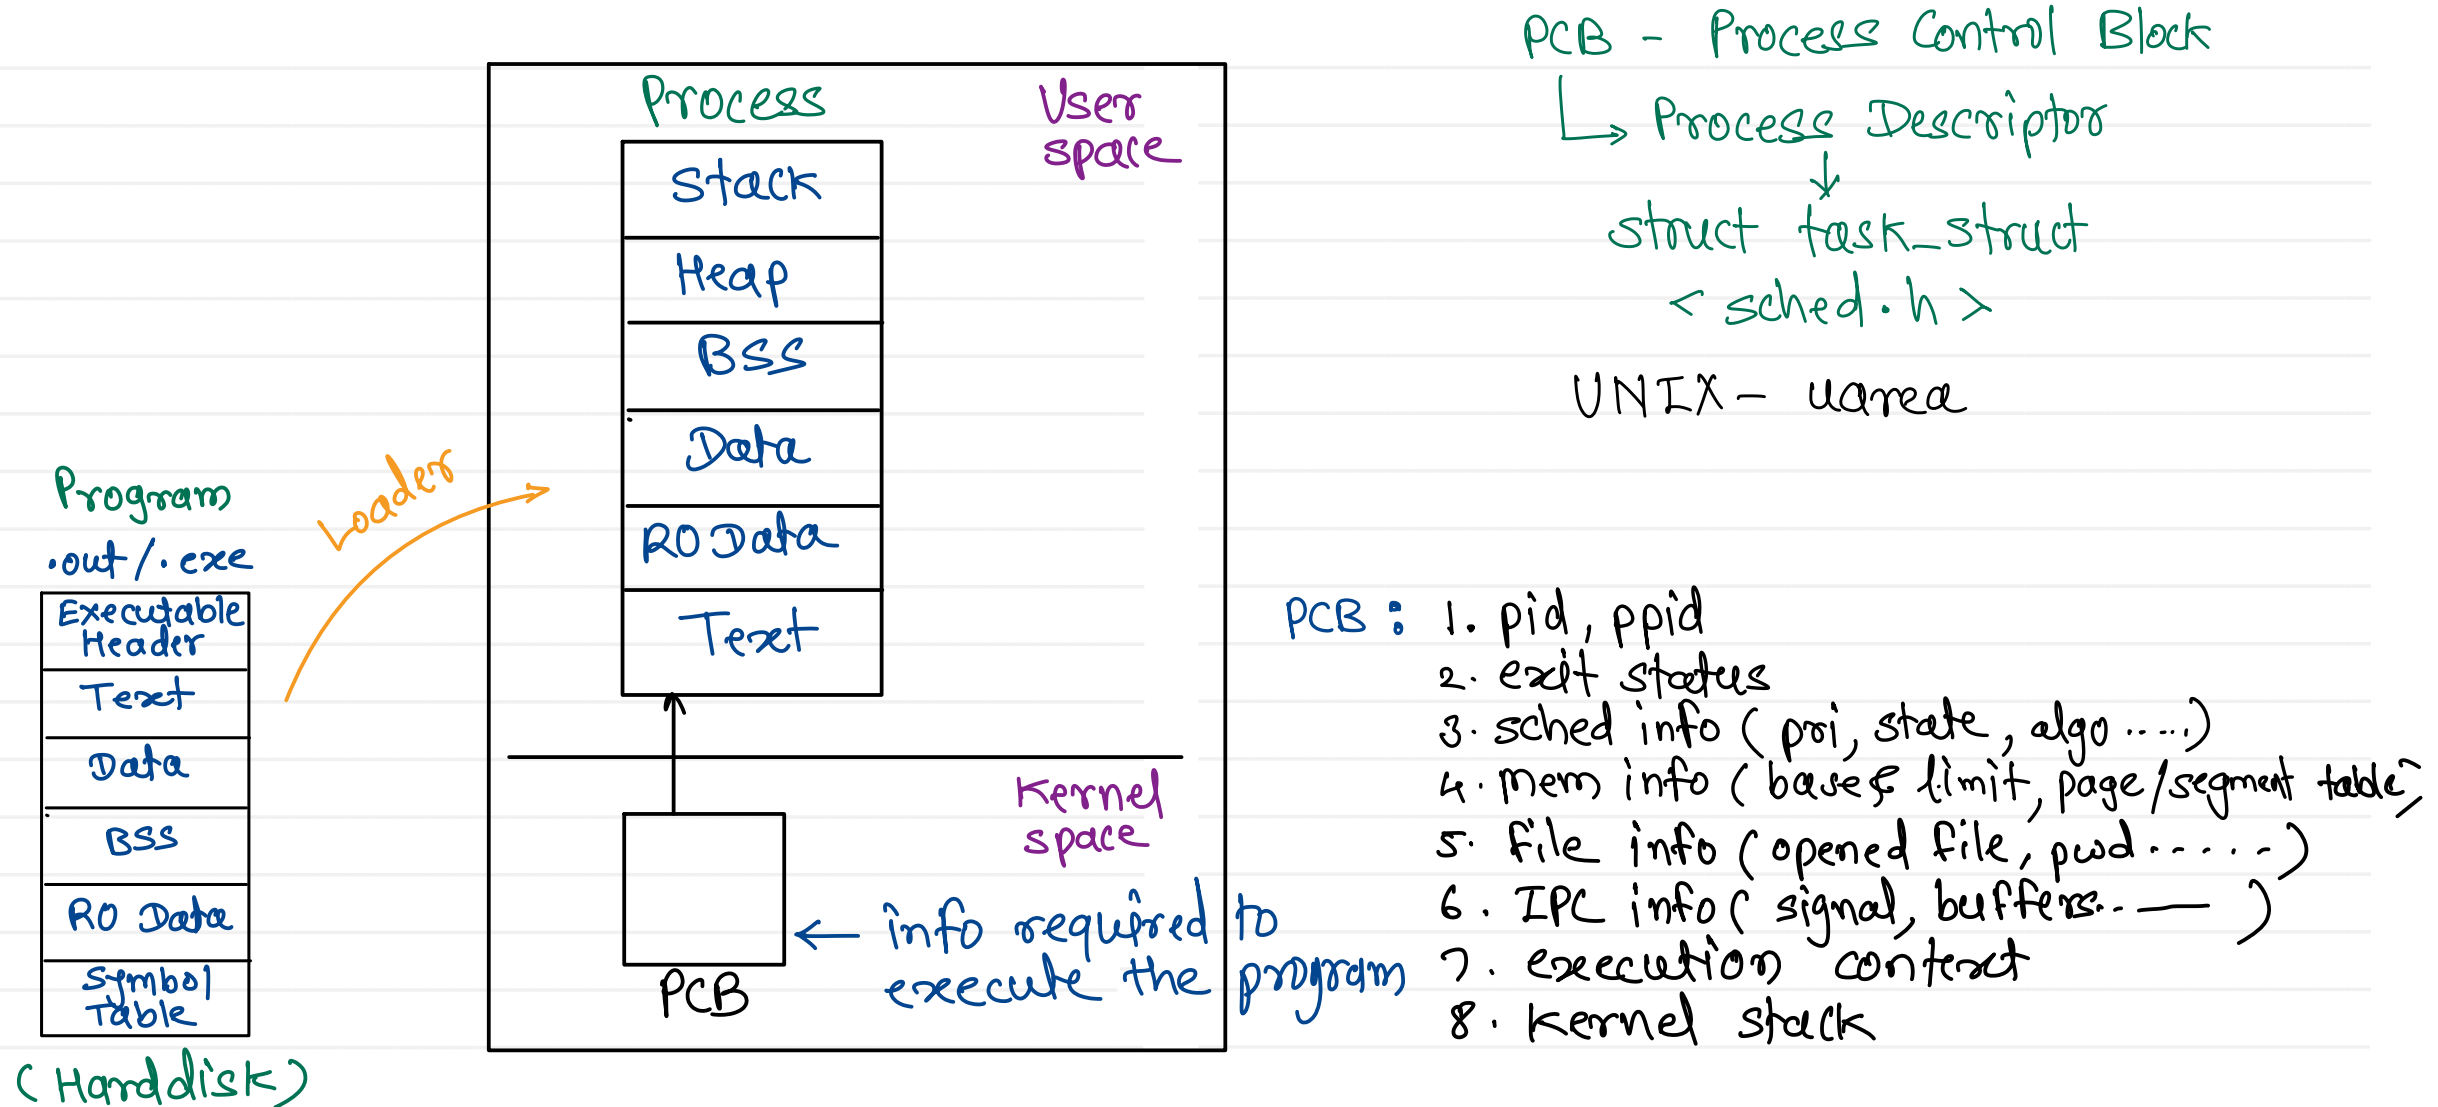 Program
.out/.exe
Executable
Header
Text
Data
BSS
RO Data
Symbol
Table
(Harddisk)
Loader
Process
User
space
Stack
Heap
BSS
Data
RO Data
Text
Kernel
space
PCB
info required to
execute the program
PCB - Process Control Block
Process Descriptor
struct task_struct
<sched.h>
UNIX - uarea
PCB : 1. pid, ppid
2. exit status
3. sched info (pri, state, algo .....)
4. mem info (base & limit, page/segment table,
5. file info (opened file, pwd ......)
6. IPC info (signal, buffers...— )
7. execution context
8. kernel stack